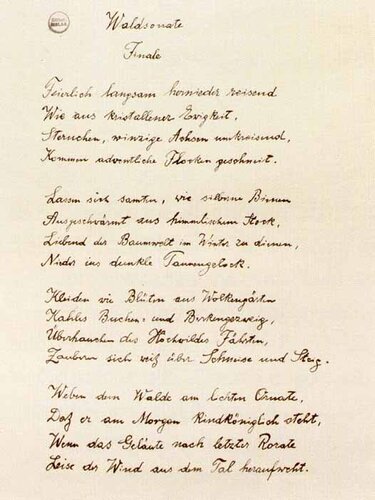 Waldsonate
Finale
Feierlich langsam hernieder reisend
Wie aus kristallener Ewigkeit,
Sternchen, winzige Achsen umkreisend,
Kommen adventliche Flocken geschneit.
Lassen sich samten, wie silberne Bienen
Ausgeschwärmt aus himmlischem Stock,
Liebend der Baumwelt im Winter zu dienen,
Nieder ins dunkle Tannengelock.
Kleiden wie Blüten aus Wolkengärten
Kahles Buchen- und Birkengezweig,
Überhauchen des Hochwildes Fährten,
Zaubern sich weiß über Schneise und Steig.
Weben dem Walde am lichten Ornate,
Daß er am Morgen kindköniglich steht,
Wenn das Geläute nach letzter Rorate
Leise der Wind aus dem Tal heraufweht.